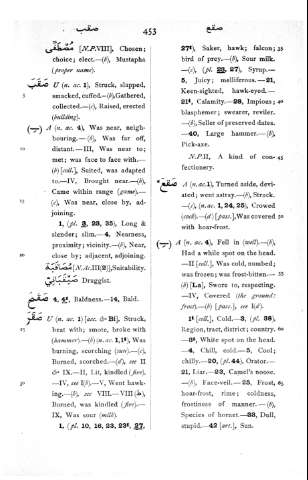 صقب
453
صقع
مُصْطَفًى [N.P.VIII], Chosen;
choice; elect.—(b), Mustapha
(proper name).
صَقَبَ U (n. ac. 1), Struck, slapped,
smacked, cuffed.—(b), Gathered,
collected.—(c), Raised, erected
(building).
A (n. ac. 4), Was near, neigh-
bouring.—(b), Was far off,
distant.—III, Was near to;
met; was face to face with.—
(b) [coll.], Suited, was adapted
to.—IV, Brought near.—(b),
Came within range (game).—
(c), Was near, close by, ad-
joining.
1, (pl. 23, 35), Long &
slender; slim.—4, Nearness,
proximity; vicinity.—(b), Near,
close by; adjacent, adjoining.
[N.Ac.III(2)], Suitability.
Druggist.
صقح 4, 4t, Baldness.—14, Bald.
صقر U (n. ac. 1) [acc. & Bi], Struck,
beat with; smote, broke with
(hammer).—(b) (n. ac. 1, 1t), Was
burning, scorching (sun).—(c),
Burned, scorched.—(d), see II
& IX.—II, Lit, kindled (fire).
—IV, see I(b).—V, Went hawk-
ing.—(b), see VIII.—VIII
Burned, was kindled (fire).—
IX, Was sour (milk).
1, (pl. 10, 16, 23, 23t, 27,
27t), Saker, hawk; falcon;
bird of prey.—(b), Sour milk.
—(c), (pl. 23, 27), Syrup.—
5, Juicy; melliferous.—21,
Keen-sighted, hawk-eyed.—
21t, Calamity.—28, Impious;
blasphemer; swearer, reviler.
—(b), Seller of preserved dates.
—40, Large hammer.—(b),
Pick-axe.
N.P.II, A kind of con-
fectionery.
صقع A (n. ac. 1), Turned aside, devi-
ated; went astray.—(b), Struck.
—(c), (n. ac. 1, 24, 25), Crowed
(cock).—(d) [pass.], Was covered
with hoar-frost.
A (n. ac. 4), Fell in (well).—(b),
Had a white spot on the head.
—II [coll.], Was cold, numbed;
was frozen; was frost-bitten.—
(b) [La], Swore to, respecting.
—IV, Covered (the ground:
frost).—(b) [pass.], see I(d).
1t [coll.], Cold.—3, (pl. 38),
Region, tract, district; country.
—3t, White spot on the head.
—4, Chill, cold.—5, Cool;
chilly.—20, (pl. 44), Orator.—
21, Liar.—23, Camel's noose.
—(b), Face-veil.—25, Frost,
hoar-frost, rime; coldness,
frostiness of manner.—(b),
Species of hornet.—33, Dull,
stupid.—42 [art.], Sun.